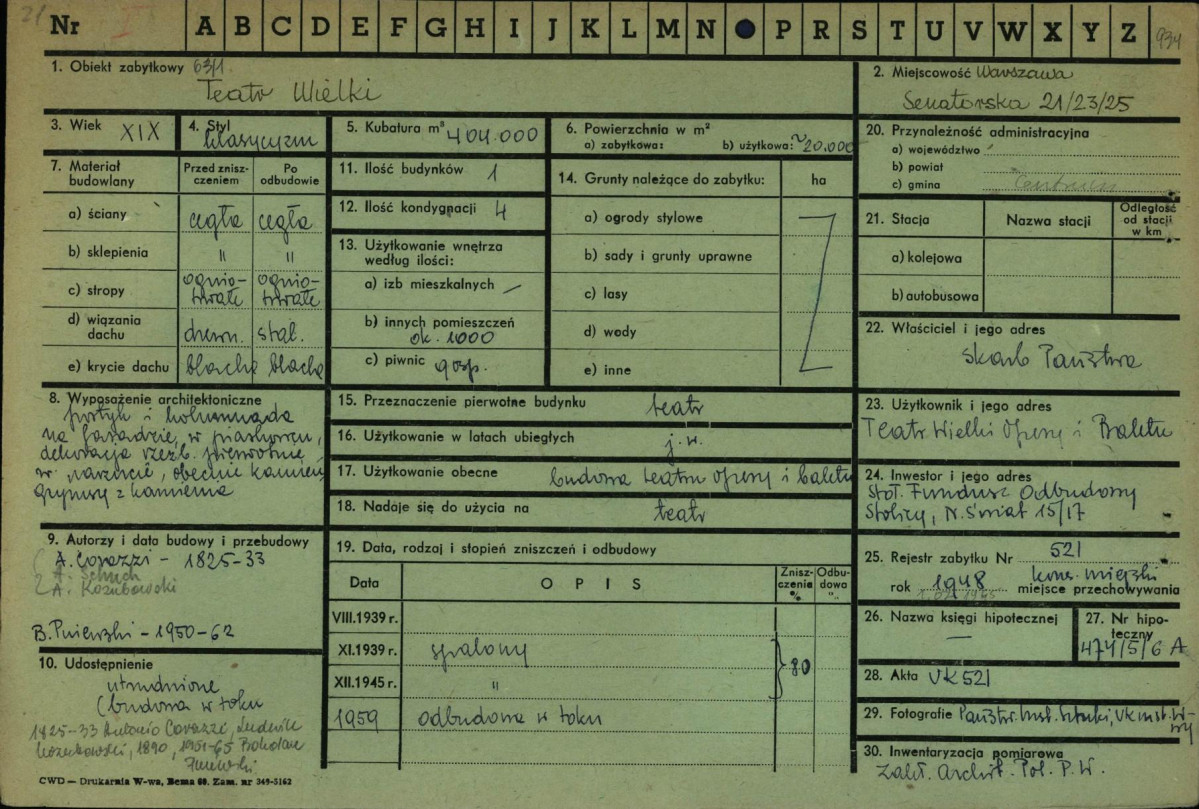 21
Nr I A B C D E F G H I J K L M N P R S T U V W X Y Z 934
1. Obiekt zabytkowy 63/1
Teatr Wielki
2. Miejscowość Warszawa
Senatorska 21/23/25
3. Wiek XIX
4. Styl klasycyzm
5. Kubatura m³ 404.000
6. Powierzchnia w m²
a) zabytkowa: b) użytkowa: ~20.000
7. Materiał budowlany
Przed zniszczeniem Po odbudowie
a) ściany cegła cegła
b) sklepienia " "
c) stropy ognio-trwałe ognio-trwałe
d) wiązania dachu drewn. stal.
e) krycie dachu blacha blacha
8. Wyposażenie architektoniczne
portyk i kolumnada
na fasadzie, w piaskowcu,
dekoracja rzeźb. pierwotnie
w narzucie, obecnie kamień
grypsy z kamienia
9. Autorzy i data budowy i przebudowy
A. Corazzi - 1825-33
A. Schuch
A. Kozubowski
B. Pniewski - 1950-62
10. Udostępnienie
utrudnione
(budowa w toku
1825-33 Antonio Corazzi, Ludwik
Kozubowski, 1890, 1951-65 Bohdan
Pniewski
CWD — Drukarnia W-wa, Bema 60. Zam. nr 349-5162
11. Ilość budynków 1
12. Ilość kondygnacji 4
13. Użytkowanie wnętrza
według ilości:
a) izb mieszkalnych —
b) innych pomieszczeń
ok. 1000
c) piwnic gosp.
14. Grunty należące do zabytku: ha
a) ogrody stylowe
b) sady i grunty uprawne
c) lasy
d) wody
e) inne
15. Przeznaczenie pierwotne budynku teatr
16. Użytkowanie w latach ubiegłych j.w.
17. Użytkowanie obecne budowa teatru Opery i Baletu
18. Nadaje się do użycia na teatr
19. Data, rodzaj i stopień zniszczeń i odbudowy
Data OPIS Zniszczenie % Odbudowa "/"
VIII.1939 r.
XI.1939 r. spalony
80
XII.1945 r. "
1959 odbudowa w toku
20. Przynależność administracyjna
a) województwo
b) powiat
c) gmina Centrum
21. Stacja Nazwa stacji Odległość od stacji w km
a) kolejowa
b) autobusowa
22. Właściciel i jego adres
Skarb Państwa
23. Użytkownik i jego adres
Teatr Wielki Opery i Baletu
24. Inwestor i jego adres
Stoł. Fundusz Odbudowy
Stolicy, N. Świat 15/17
25. Rejestr zabytku Nr 521
rok 1948 kons. miejski
1.07.1965 miejsce przechowywania
26. Nazwa księgi hipotecznej
—
27. Nr hipoteczny
474/5/6 A
28. Akta UK 521
29. Fotografie Państw. Inst. Sztuki, UK
30. Inwentaryzacja pomiarowa
Zakł. Archit. Pol. P.W.